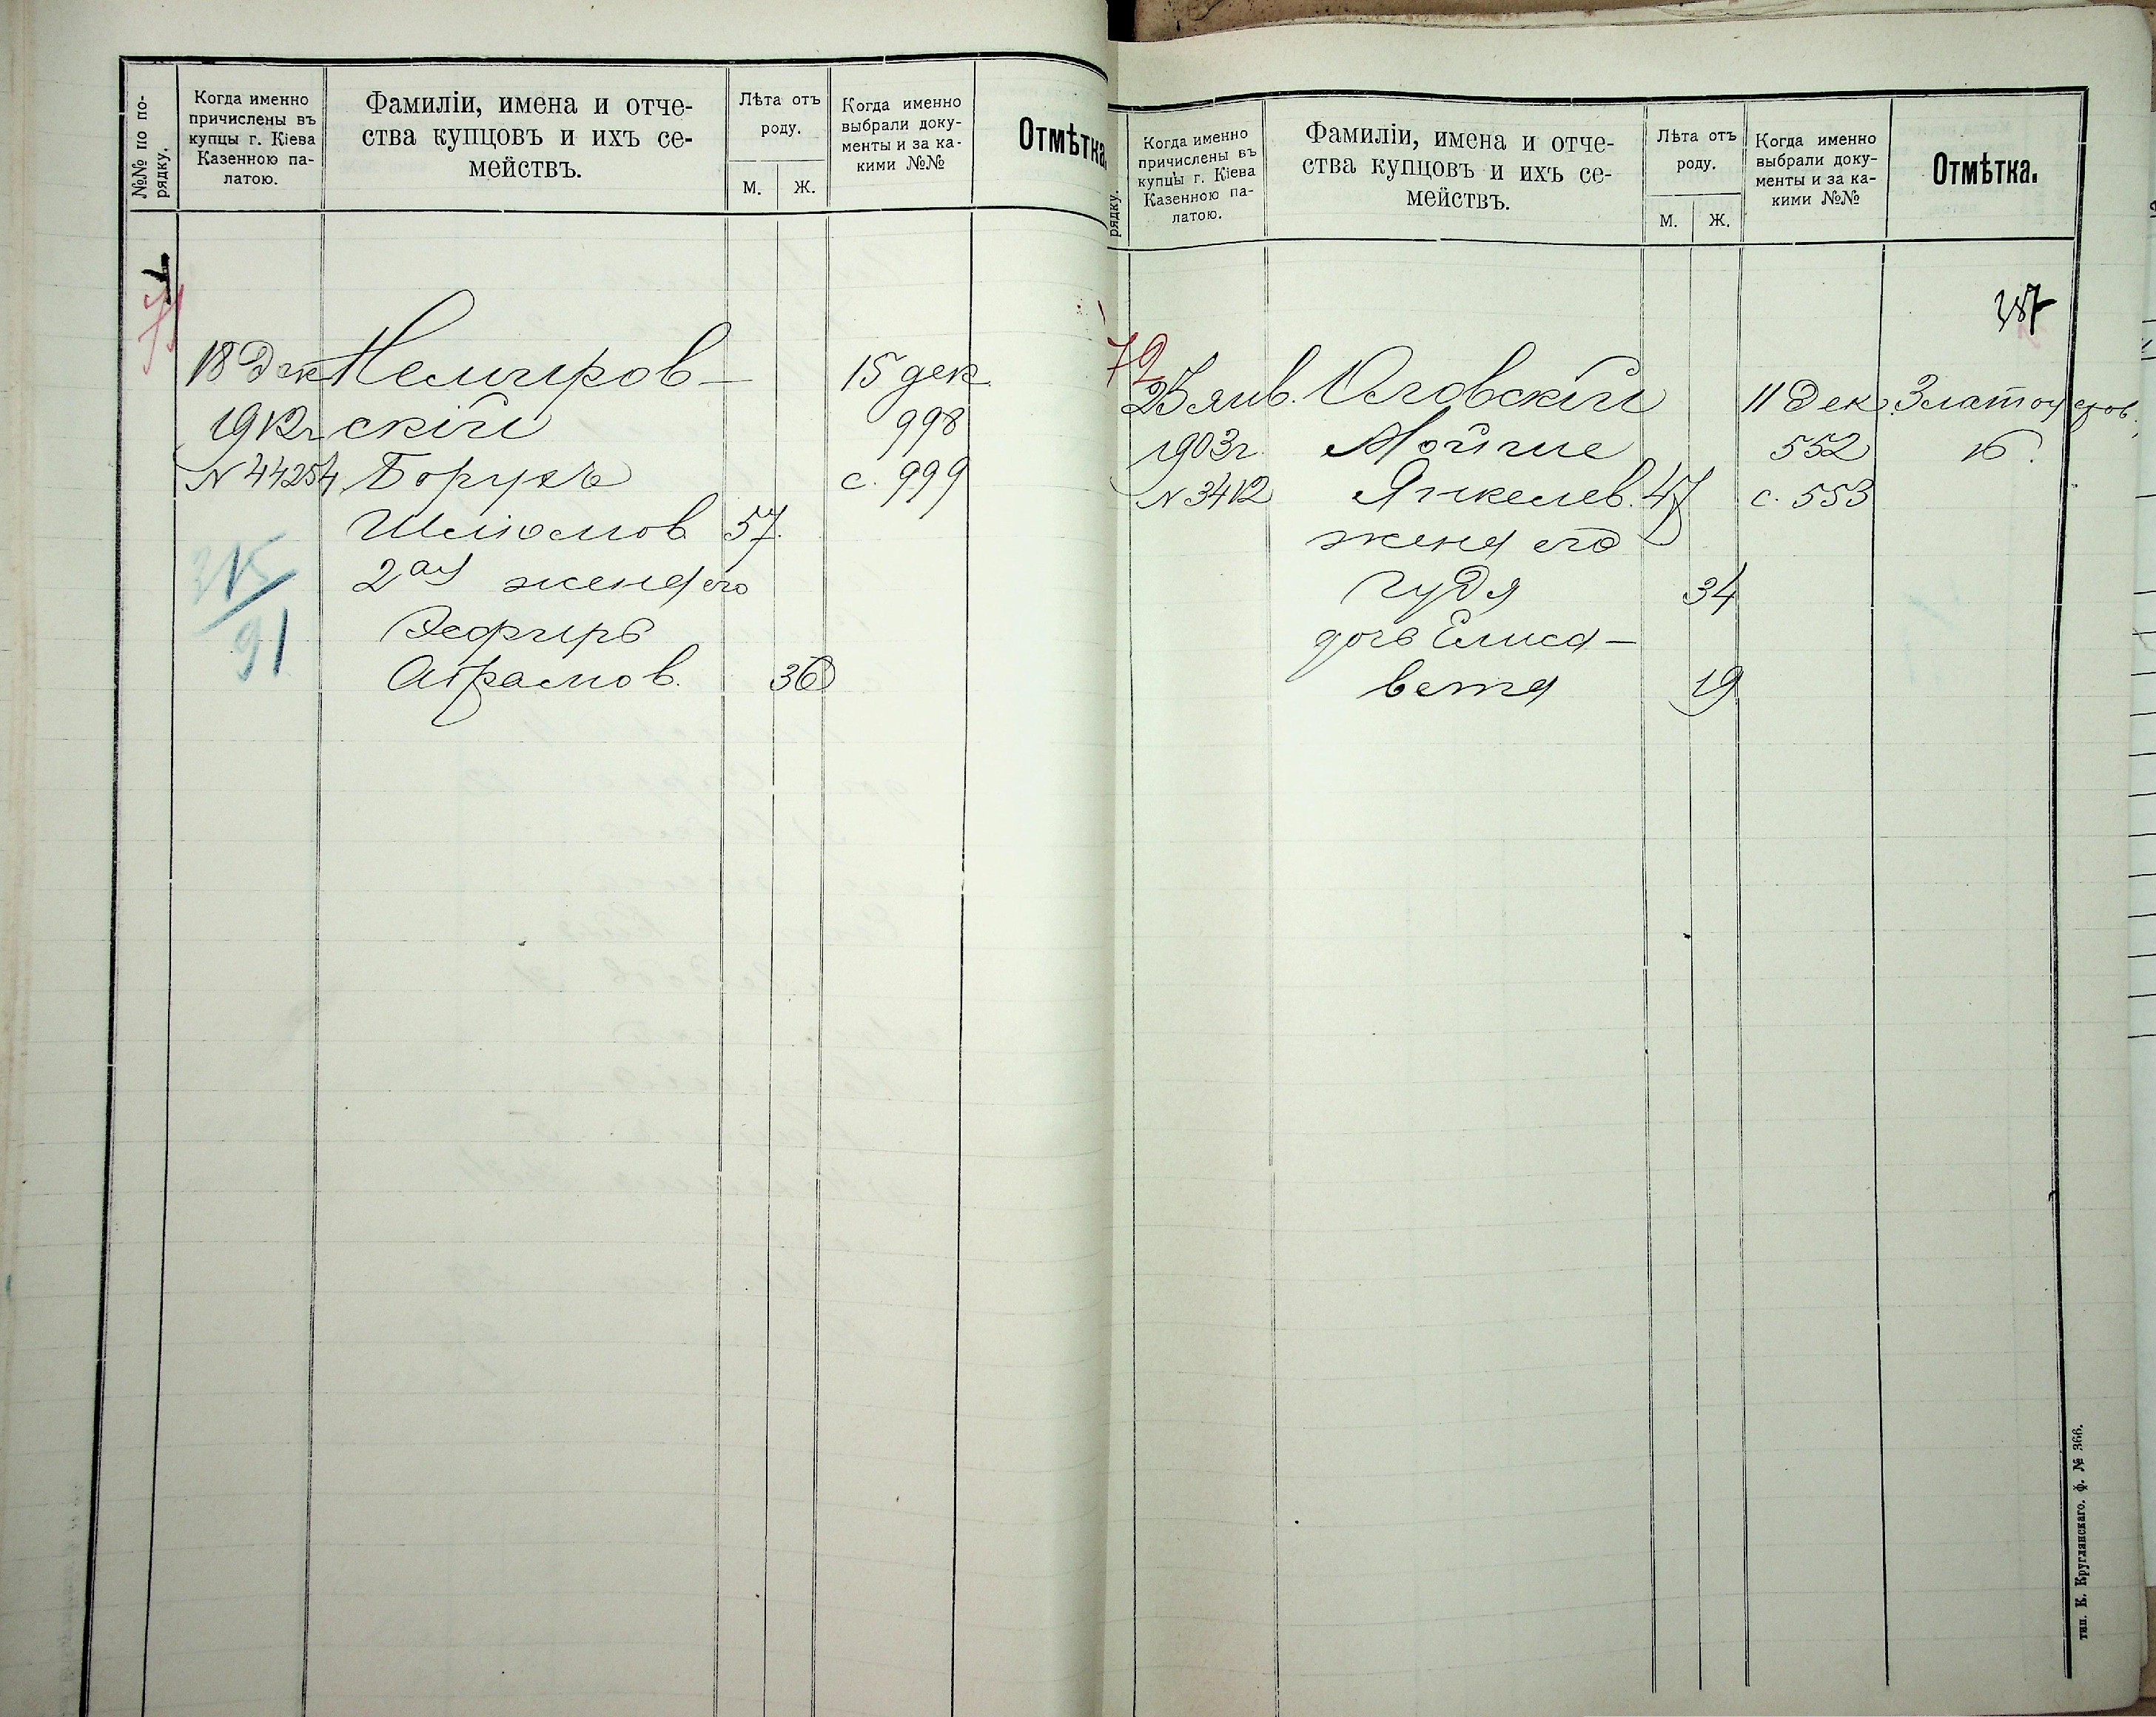 №№ по по-
рядку.
Когда именно
причислены въ
купцы г. Кіева
Казенною па-
латою.
Фамиліи, имена и отче-
ства купцовъ и ихъ се-
мействъ.
Лѣта отъ
роду.
М.
Ж.
Когда именно
выбрали доку-
менты и за ка-
кими №№
Отмѣтка
71
18 Дек
1912 г
N 44254
315
91
Немиров-
скій
Борухъ
Шлиомов 57.
2ая жена его
Эсфирь
Абрамов. 36
15 дек.
998
с. 999
рядку.
Когда именно
причислены въ
купцы г. Кіева
Казенною па-
латою.
Фамиліи, имена и отче-
ства купцовъ и ихъ се-
мействъ.
Лѣта отъ
роду.
М.
Ж.
Когда именно
выбрали доку-
менты и за ка-
кими №№
Отмѣтка.
387
72
25 янв.
1903 г.
N 3412
Юговскій
Мойше
Янкелев. 47
жена его
Гудя 34
дочь Елиса-
вета 19
11 Дек.
552
с. 553
Златоустов.
16.
тип. К. Круглянскаго. ф. № 366.